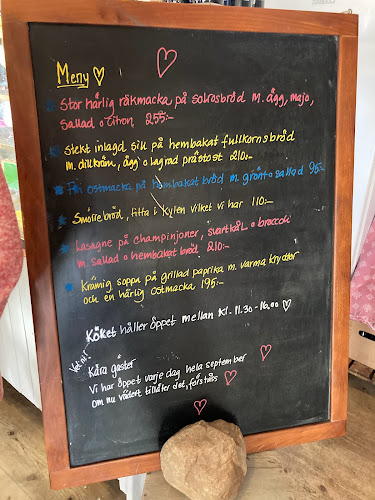 Meny
Stor härlig räkmacka på solrosbröd m. ägg, majo,
sallad o citron 255:-
Stekt inlagd sill på hembakat fullkornsbröd
m. dillkräm, ägg o lagrad prästost 210:-
ostmacka på hembakat bröd m. grönt o sallad 95:-
Smörrebröd, titta i kylen vilket vi har 110:-
Lasagne på champinjoner, svartkål o broccoli
m. sallad o hembakat bröd 210:-
Krämig soppa på grillad paprika m. varma kryddor
och en härlig ostmacka 195:-
Köket håller öppet mellan kl. 11.30-16.00
Kära gäster
Vi har öppet varje dag hela september
om nu vädret tillåter det, förstås